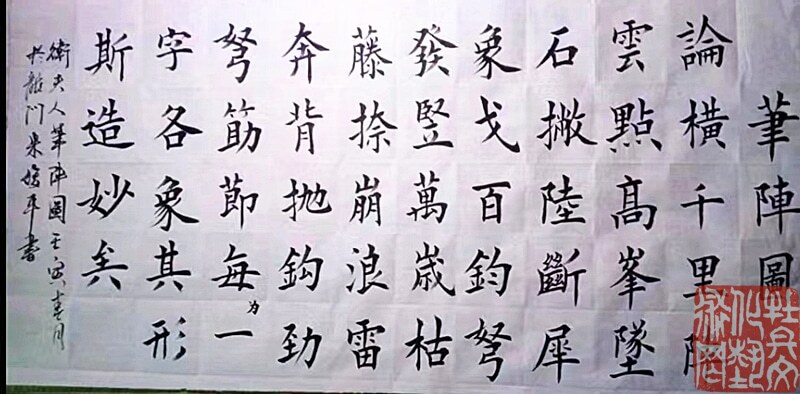 筆陣圖
論橫千里陣
雲點髙峯墜
石撇陸斷犀
象戈百鈞弩
發豎萬歳枯
藤捺崩浪雷
奔背拋鈎勁
弩筋節每为一
字各象其形
斯造妙矣
衛夫人筆陣圖壬寅春月
於龍门平書